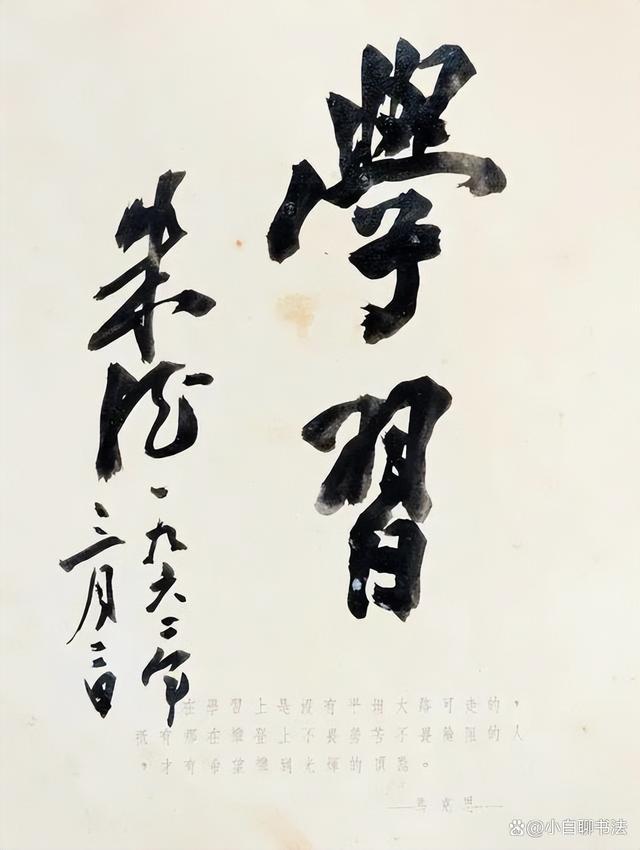 學習
朱德
一九六二年
三月二日
在學習上是沒有平坦大路可走的，
祇有那在攀登上不畏勞苦不畏險阻的人
，才有希望攀到光輝的頂點。
——馬克思——
小白聊书法